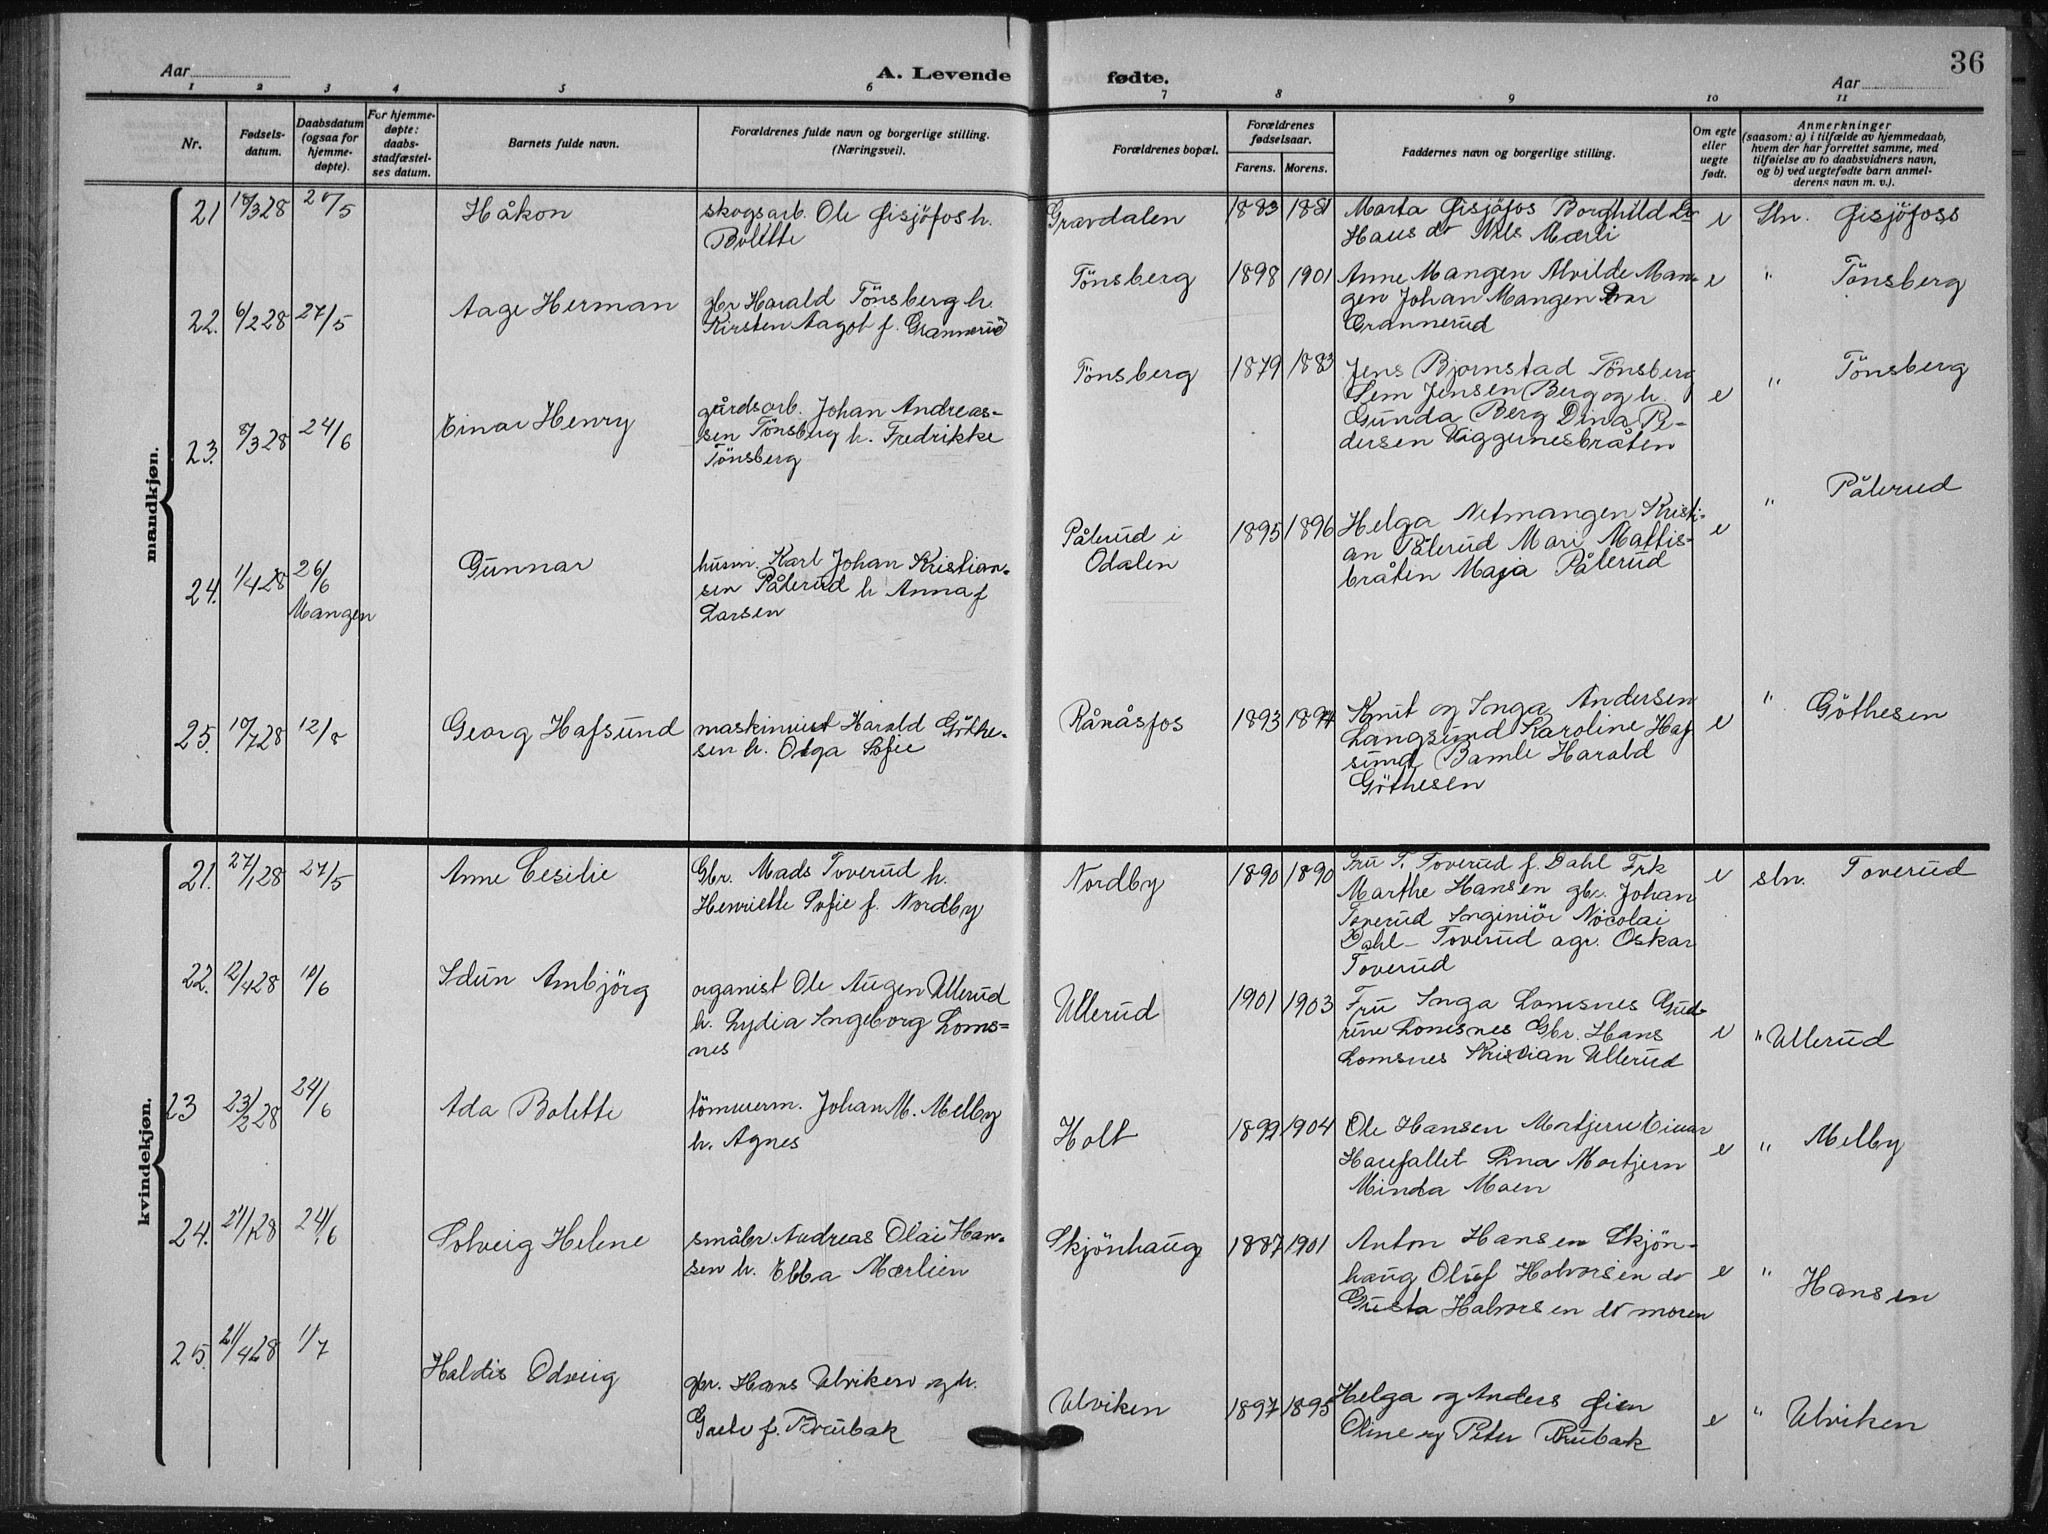 36
Aar
A. Levende fødte.
Aar
1 2 3 4 5 6 7 8 9 10 11
Nr.
Fødsels-
datum.
Daabsdatum
(ogsaa for
hjemme-
døpte).
For hjemme-
døpte:
daabs-
stadfæstel-
ses datum.
Barnets fulde navn.
Forældrenes fulde navn og borgerlige stilling.
(Næringsvei).
Forældrenes bopæl.
Forældrenes
fødselsaar.
Farens. Morens.
Faddernes navn og borgerlige stilling.
Om egte
eller
uegte
født.
Anmerkninger
(saasom: a) i tilfælde av hjemmedaab,
hvem der har forrettet samme, med
tilføielse av to daabsvidners navn,
og b) ved uegtefødte barn anmel-
derens navn m. v.).
mandkjøn.
21 18/3 28 27/5 Håkon
skogsarb. Ole Gisjöfos h.
Bolette
Gravdalen 1883 1881
Marta Gisjöfos Borghild do
Hans do Nils Mærli
e Stn. Gisjöfoss
22. 6/2 28 27/5 Aage Herman
gbr Harald Tönsberg h.
Kirsten Aagot f. Grannerud
Tönsberg 1898 1901
Anne Mangen Alvilde Man-
gen Johan Mangen Ivar
Grannerud
e " Tönsberg
23. 8/3 28 24/6 Einar Henry
gårdsarb. Johan Andreas-
sen Tönsberg h. Fredrikke
Tönsberg
Tönsberg 1879 1883
Jens Bjornstad Tönsberg
Sem Jensen Berg og h.
Gunda Berg Dina Pe-
dersen Viggernesbråten
e " Tönsberg
24. 1/4 28 26/6
Mangen
Gunnar
husm. Karl Johan Kristian-
sen Pålerud h Anna f
Larsen
Pålerud i
Odalen
1895 1896
Helga Netmangen Kristi-
an Pålerud Mari Mattis-
bråten Maja Pålerud
e " Pålerud
25. 10/7 28 12/8 Georg Hafsund
maskinvist Harald Göthe-
sen h. Olga Sofie
Rånåsfos 1893 1894
Knut og Inga Andersen
Langsund Karoline Haf
sund Bamle Harald
Göthesen
e " Göthesen
kvindekjøn.
21. 27/1 28 27/5 Anne Cesilie
Gbr. Mads Toverud h.
Henriette Sofie f. Nordby
Nordby 1890 1890
Fru T. Toverud f. Dahl Frk
Marthe Hansen gbr. Johan
Toverud Inginiör Nicolai
Dahl- Toverud agr. Oskar
Toverud
e stn. Toverud
22. 12/4 28 10/6 Idun Ambjörg
organist Ole Augen Ullerud
h. Lydia Ingeborg Loms=
nes
Ullerud 1901 1903
Fru Inga Lomsnes Gud-
run Lomsnes Gbr. Hans
Lomsnes Kristian Ullerud
e " Ullerud
23 23/2 28 24/6 Ada Bolette
tömmerm. Johan M. Melby
h. Agnes
Holt 1892 1904
Ole Hansen Mortjern Einar
Harefallet Anna Mortjern
Minda Moen
e " Melby
24. 21/1 28 24/6 Solveig Helene
småbr. Andreas Olai Han-
sen h. Ebba Mærlien
Skjönhaug 1887 1901
Anton Hansen Skjön-
haug Oluf Halvorsen do
Gusta Halvorsen do moren
e " Hansen
25. 21/4 28 1/7 Haldis Odveig
gbr. Hans Ulviken og h.
Grete f. Brubak
Ulviken 1897 1895
Helga og Anders Øien
Oline og Peter Brubak
e " Ulviken